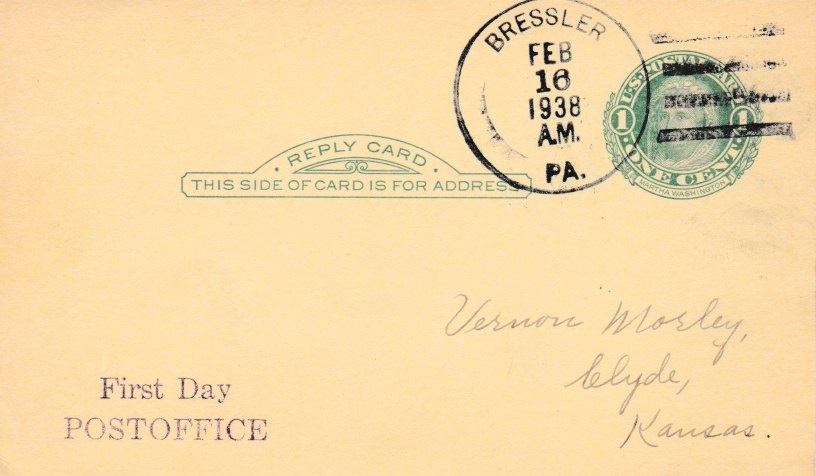 BRESSLER
FEB
16
1938
A.M.
PA.
U.S. POSTAGE
1 1
ONE CENT
MARTHA WASHINGTON
· REPLY CARD ·
THIS SIDE OF CARD IS FOR ADDRESS
Vernon Morley,
Clyde,
Kansas.
First Day
POSTOFFICE